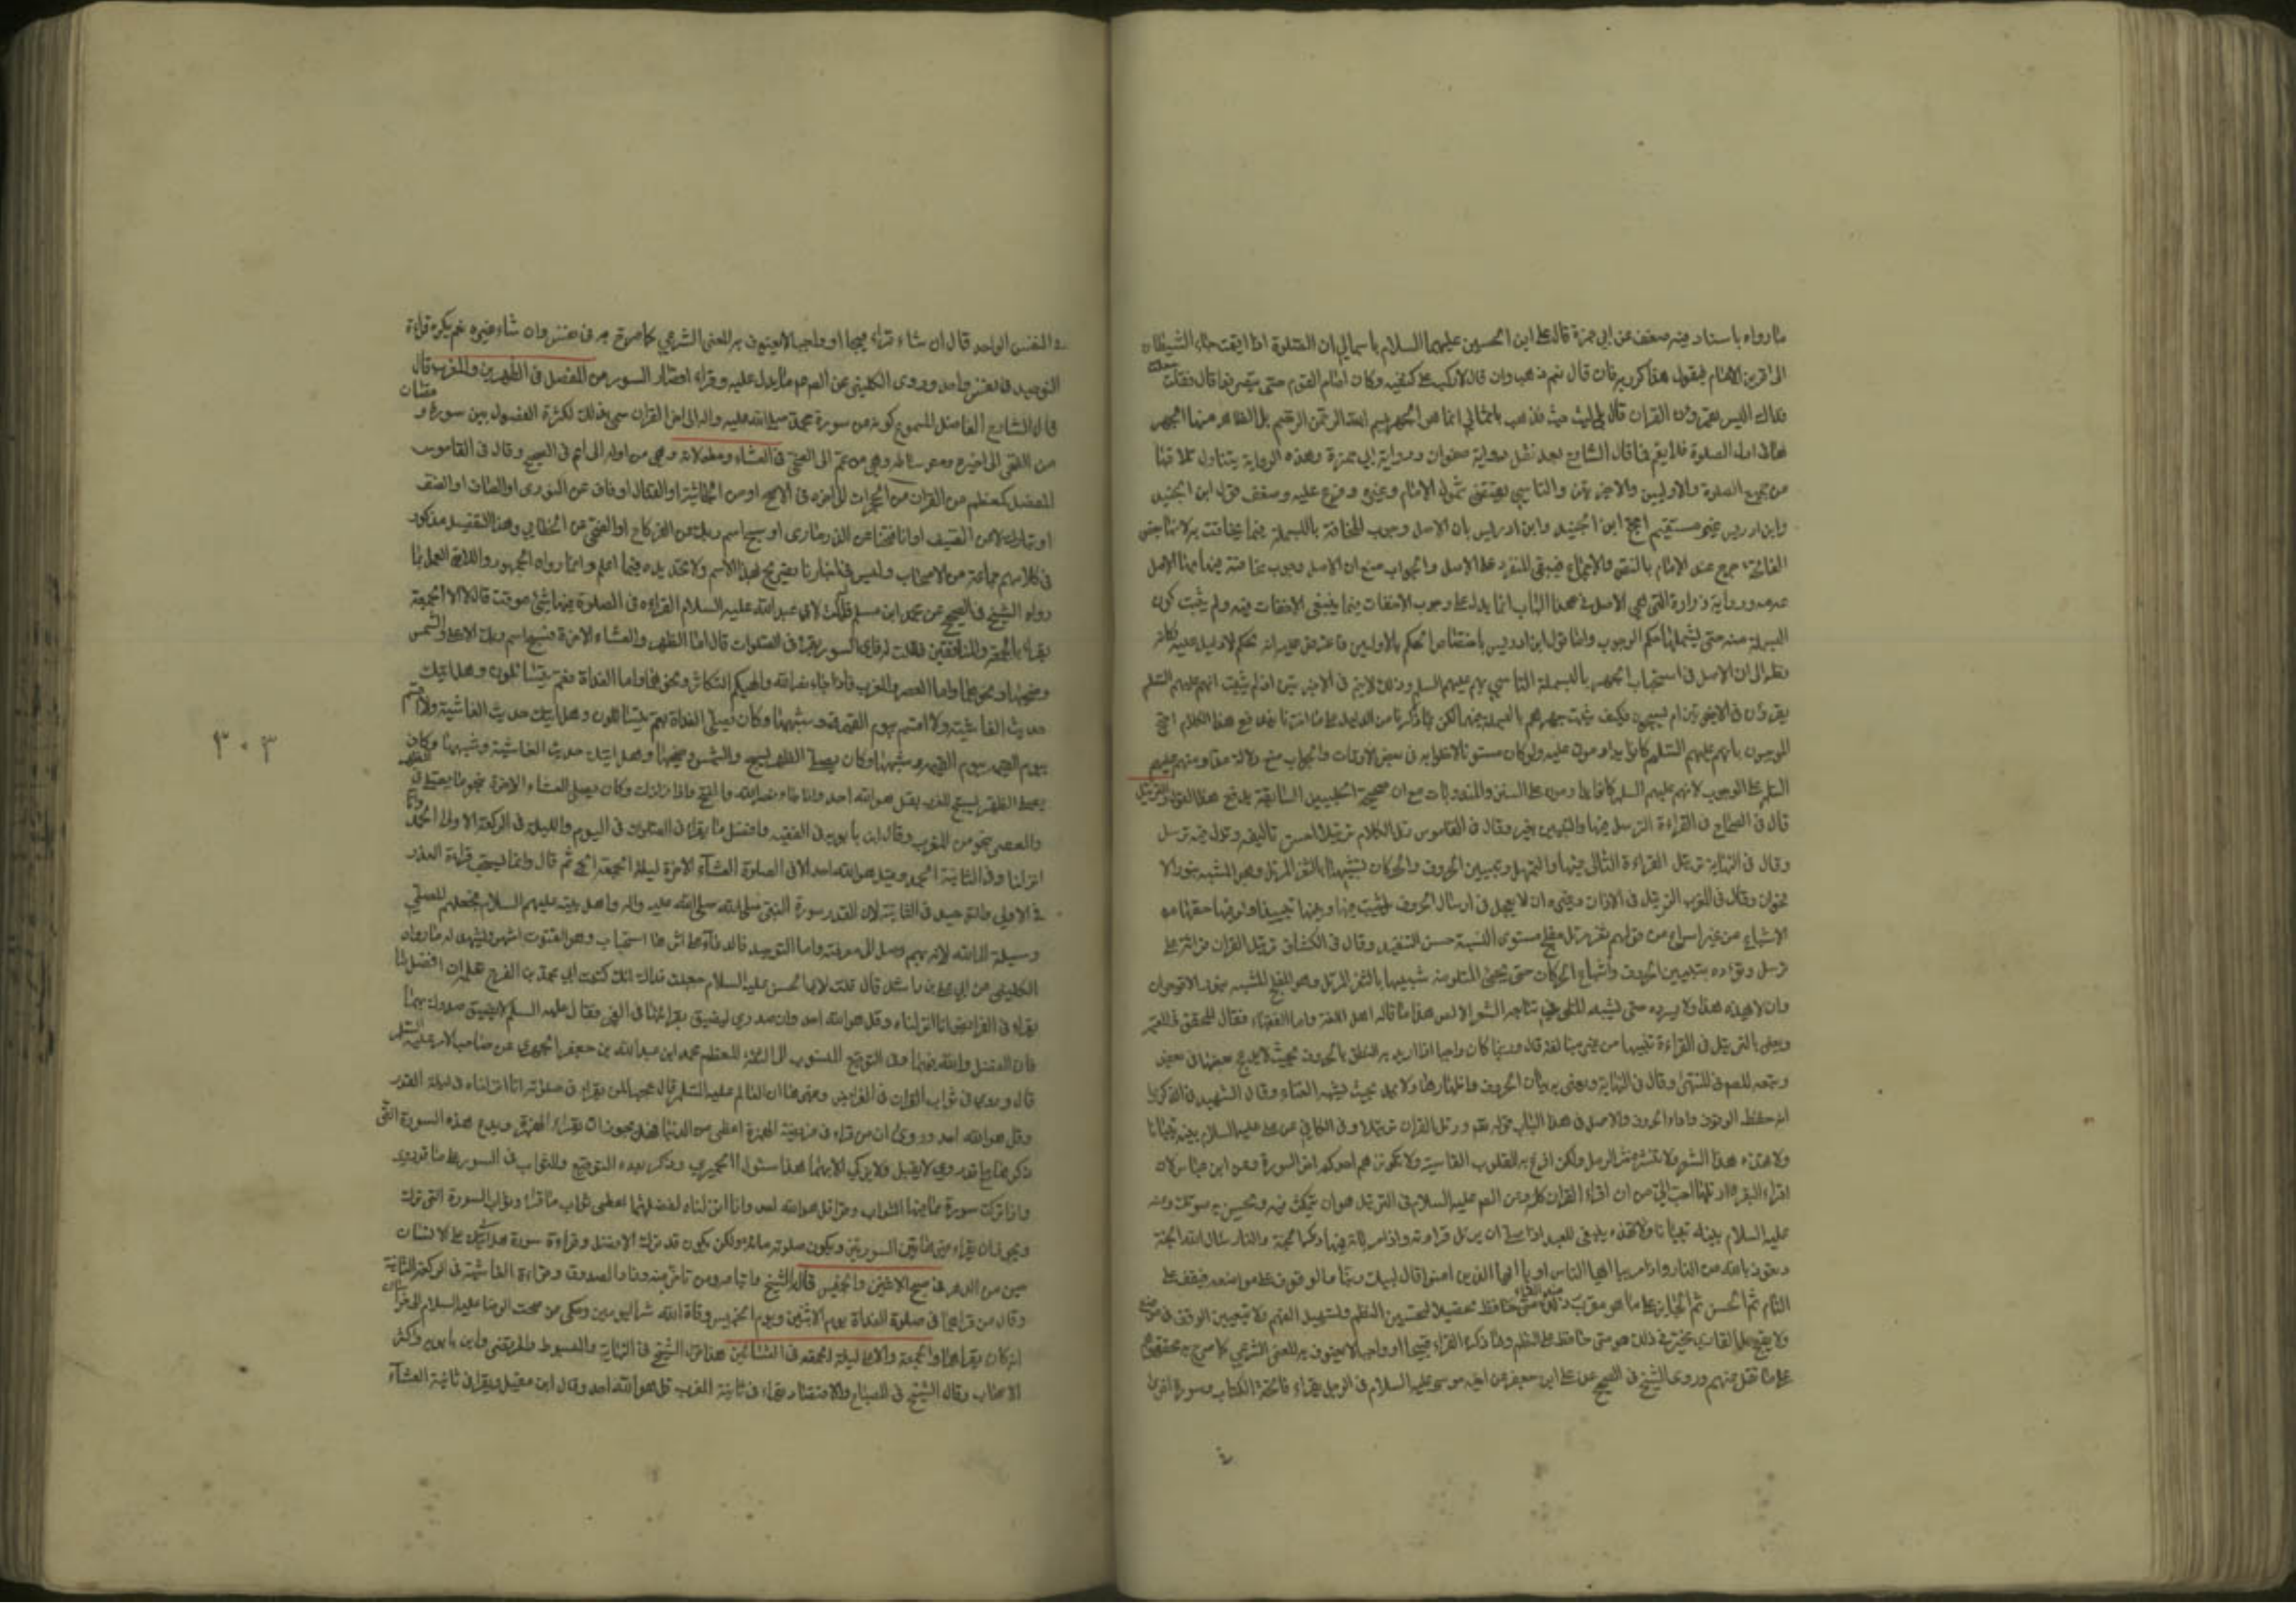 ما رواه باسناد فيه ضعف عن ابي حمزة قال علي ابن الحسين عليهما السلام يا ثمالي ان الصلوة اذا اقيمت جاء الشيطان
الى قرين الامام فيقول هل ذكر ربه فان قال نعم ذهب وان قال لا ركب على كتفيه وكان امام القوم حتى ينصرفوا قال فقلت جعلت
فداك اليس يقرؤن القران قال بلى ليس حيث تذهب يا ثمالي انما هو الجهر ببسم الله الرحمن الرحيم بل الظاهر منها الجهر
بها في اول الصلوة فلا يتم ما قال الشارح بعد نقل رواية صفوان ورواية ابي حمزة وهذه الرواية يتناول
من جميع الصلوة والاوليين والاخيرتين والتاسي يقتضي شمول الامام وغيره وضعف قول ابن الجنيد
وابن ادريس غير مستقيم احتج ابن الجنيد وابن ادريس بان الاصل وجوب المخافتة بالبسملة فيما يخافت به لانها بعض
الفاتحة خرج عنه الامام بالنص والاجماع فيبقى المنفرد على الاصل والجواب منع ان الاصل وجوب مخافتة فيها
ورواية زرارة التي هي الاصل في هذا الباب انما يدل على وجوب الاخفات فيما ينبغي الاخفات فيه ولم يثبت كون
البسملة منه حتى يشملها حكم الوجوب واما قول ابن ادريس باختصاص الحكم بالاوليين فاعترض عليه انه تحكم لا دليل عليه
نظر الى ان الاصل في استحباب الجهر بالبسملة التاسي بهم عليهم السلم وذلك لا يتم في الاخيرتين اذ لم يثبت انهم عليهم السلم
يقرؤن في الاخيرتين ام يسبحون فكيف يثبت جهرهم بالبسملة فيهما لكن ما ذكرنا من الدليل على ما اخترنا هذا الكلام احتج
الموجبون بانهم عليهم السلم كانوا يداومون عليه ولو كان مسنونا لاخلوا به في بعض الاوقات والجواب منع دلالة مداومتهم عليهم
السلم على الوجوب لانهم عليهم السلم كانوا يداومون على السنن والمندوبات مع ان صحيحة الحلبيين السابقة يدفع هذا القول والترتيل
قال في الصحاح في القراءة الترسل فيها والتبيين بغير وقال في القاموس رتل الكلام ترتيلا احسن تاليفه وترتل فيه ترسل
وقال في النهاية ترتيل القراءة التاني فيها والتمهل وتبيين الحروف والحركات تشبيها بالثغر المرتل وهو المشبه بنور الا
قحوان وقال في المغرب الترتيل في الاذان وغيره ان لا يعجل في ارسال الحروف بل يتثبت فيها ويبينها تبيينا ويوفيها حقها من
الاشباع من غير اسراع من قولهم ثغر مرتل مفلج مستوي النسبة حسن التنضيد وقال في الكشاف ترتيل القران قراءته على
ترسل وتؤدة بتبيين الحروف واشباع الحركات حتى يجيئ المتلو منه شبيها بالثغر المرتل وهو المفلج المشبه بنور الاقحوان
وان لا يهذه هذا ولا يسرده حتى يشبه المتلو في تتابعه الثغر الالص هذا ما قاله اهل اللغة واما الفقهاء فقال المحقق في المعتبر
ويعنى بالترتيل في القراءة تبيينها من غير مبالغة قال وربما كان واجبا اذا اريد به النطق بالحروف بحيث لا يدمج بعضها في بعض
وتبعه المصنف في المنتهى وقال في النهاية ويعني به بيان الحروف واظهارها ولا يمد بحيث يشبه الغناء وقال الشهيد في الذكرى
انه حفظ الوقوف واداء الحروف والاصل في هذا الباب قوله تعم ورتل القران ترتيلا وفي الكافي عن علي عليه السلام بينه تبيانا
ولا تهذه هذا الشعر ولا تنثره نثر الرمل ولكن افزع به القلوب القاسية ولا يكونن هم احدكم اخر السورة وعن ابن عباس لان
اقراء البقرة ارتلها احب الي من ان اقراء القران كله وعن الصم عليه السلام في الترتيل هو ان تتمكث فيه وتحسن به صوتك وعنه
عليه السلام ينبغي للعبد اذا صلى ان يرتل قراءته واذا مر باية فيها ذكر الجنة والنار سال الله الجنة
وتعوذ بالله من النار واذا مر بيا ايها الناس او يا ايها الذين امنوا قال لبيك ربنا والوقوف على مواضعه فيقف على
التام ثم الحسن ثم الجايز على ما هو مقرب عند القراء تحصيلا لتحسين النظم وتسهيل الفهم ولا يتعيين الوقف في موضع
ولا يقبح بل القاري مخير في ذلك هو متى حافظ على النظم وما ذكره القراء قبيحا او واجبا لا يعنون به المعنى الشرعي كما صرح به محققوهم
على ما نقل عنهم وروى الشيخ في الصحيح عن علي ابن جعفر عن اخيه موسى عليه السلام في الرجل يقراء فاتحة الكتاب وسورة اخرى
في النفس الواحد قال ان شاء قراء قبيحا او واجبا لا يعنون به المعنى الشرعي كما صرح به في نفس وان شاء غيره نعم يكره قراءة
التوحيد في نفس واحد وروى الكليني عن الصم ما يدل عليه وقراءة قصار السور من المفصل في الظهرين والمغرب قال
قال الشارح الفاضل المسموع كونه من سورة محمد صلى الله عليه واله الى اخر القران سمي بذلك لكثرة الفصول بين سوره
وقال في القاموس
المفصل كمعظم من القران من الحجرات الى اخره في الاصح او من الجاثية او القتال او قاف عن النووي او الصافات او الصف
او تبارك عن ابن ابي الصيف او انا فتحنا عن الدزماري او سبح اسم ربك عن الفركاح او الضحى عن الخطابي وهذا التفصيل مذكور
في كلامهم جماعة من الاصحاب وليس في اخبارنا تصريح بهذا الاسم ولا تحديده فيما اعلم وانما رواه الجمهور والذي العمل بما
رواه الشيخ في الصحيح عن محمد ابن مسلم قال قلت لابي عبد الله عليه السلام القراءة في الصلوة فيها شئ موقت قال لا الا الجمعة
يقراء بالجمعة والمنافقين قلت له فاي السور يقرء في الصلوات قال اما الظهر والعشاء الاخرة فسبح اسم ربك الاعلى والشمس
وضحيها ونحوها واما العصر والمغرب فاذا جاء نصر الله والهيكم التكاثر ونحوها واما الغداة فعم يتسائلون وهل اتيك
حديث الغاشية ولا اقسم بيوم القيمة وشبهها وكان يصلي الغداة بعم يتسائلون وهل اتيك حديث الغاشية ولا اقسم
بيوم القيمة وشبهها وكان يصلي الظهر بسبح والشمس وضحيها وهل اتيك حديث الغاشية وشبهها وكان
يصلى المغرب بقل هو الله احد واذا جاء نصر الله والفتح واذا زلزلت وكان يصلي العشاء الاخرة بنحو ما يصلي في الظهر
والعصر بنحو من المغرب وقال ابن بابويه في الفقيه وافضل ما يقراء في الصلوات في اليوم والليلة في الركعة الاولى الحمد وانا
انزلناه وفي الثانية الحمد وقل هو الله احد الا في الصلوة العشاء الاخرة ليلة الجمعة الخ ثم قال وانما يستحب قراءة القدر
في الاولى والتوحيد في الثانية لان القدر سورة النبي صلى الله عليه واله واهل بيته عليهم السلام فيجعلهم المصلي
وسيلة الى الله لانه بهم وصل الى معرفته واما التوحيد فالدعاء على اثرها استجاب وهو القنوت انتهى ويشهد له ما رواه
الكليني عن ابي علي بن راشد قال قلت لابي الحسن عليه السلام جعلت فداك انك كتبت الى محمد بن الفرج تعلمه ان افضل ما
يقراء في الفرائض انا انزلناه وقل هو الله احد وان صدري ليضيق بقراءتهما في الفجر فقال عليه السلم لا يضيقن صدرك بهما
فان الفضل والله فيهما وفي التوقيع المنسوب الى الحجة المعظم محمد ابن عبد الله بن جعفر الحميري عن صاحب الامر عليه السلم
قال وروي في ثواب القران في الفرايض وغيرها ان العالم عليه السلم قال عجبا لمن لم يقراء في صلوته انا انزلناه في ليلة القدر
وقل هو الله احد وروي ان من قراء في فرايضه الهمزة اعطى من الدنيا فهل يجوز ان يقراء الهمزة ويدع هذه السورة التي
ذكرناها مع ما قد روي لا يقبل ولا يزكي الا بهما هذا سئوال الحميري وذكر بعده التوقيع والثواب في السور على ما قد روي
واذا ترك سورة مما فيها الثواب وقراء قل هو الله احد وانا انزلناه لفضلهما اعطى ثواب ما قراء وثواب السورة التي ترك
ويجوز ان يقراء غير هاتين السورتين ويكون صلوته تامة ولكن يكون قد ترك الافضل وقراءة سورة هل اتيك على الانسان
حين من الدهر في صبح الاثنين والخميس قال الشيخ والصدوق وقراءة الغاشية في الركعة الثانية
وقال من قراهما في صلوة الغداة يوم الاثنين ويوم الخميس وقاه الله شر اليومين وحكى من صحب الرضا عليه السلام الى خراسان
انه كان يقراهما والجمعة والاعلى ليلة الجمعة في العشائين هذا قول الشيخ في النهاية والمبسوط والمرتضى وابن بابويه واكثر
الاصحاب وقال الشيخ في المصباح والاقتصاد يقراء في ثانية المغرب قل هو الله احد وقال ابن عقيل ويقرا في ثانية العشاء
٣٠٣